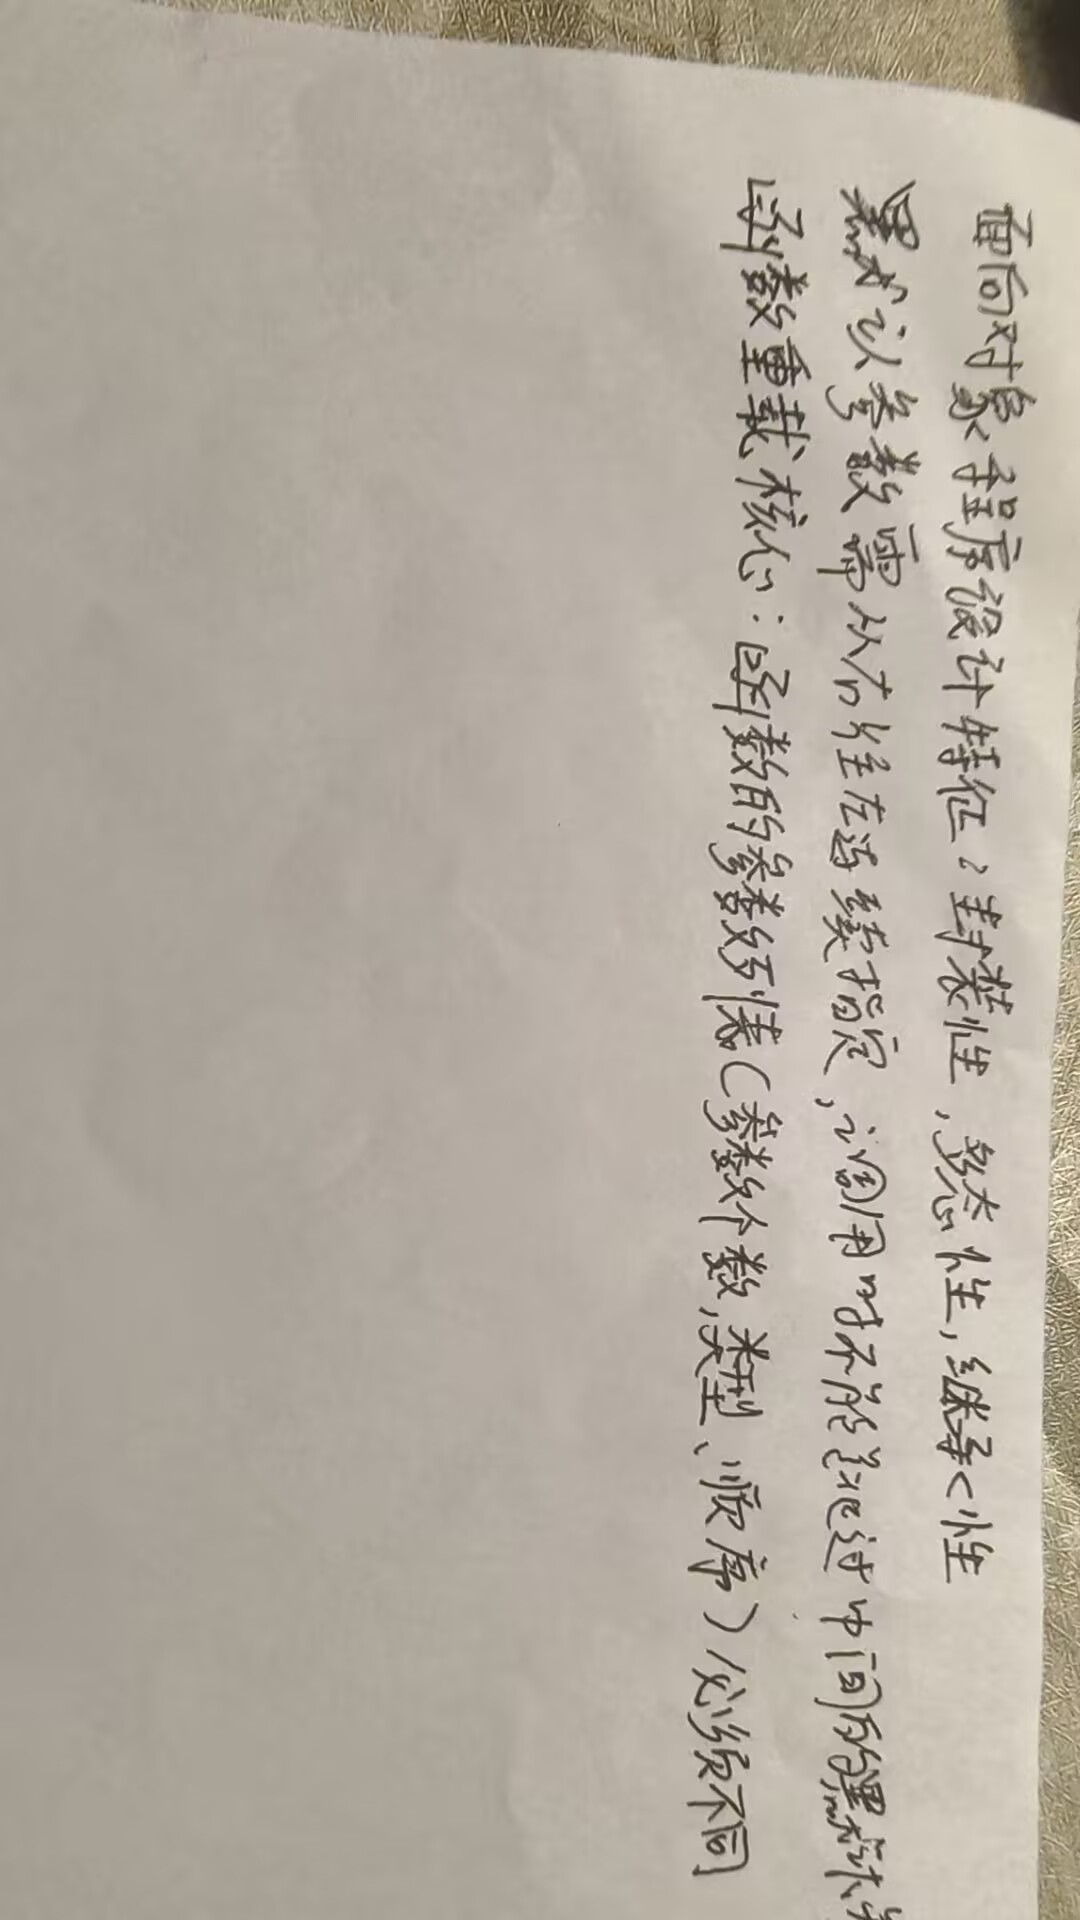 面向对象程序设计特征：封装性，多态性，继承性
默认参数需从右往左连续指定，调用时不能跳过中间的默认
函数重载核心：函数的参数列表（参数个数，类型、顺序）必须不同